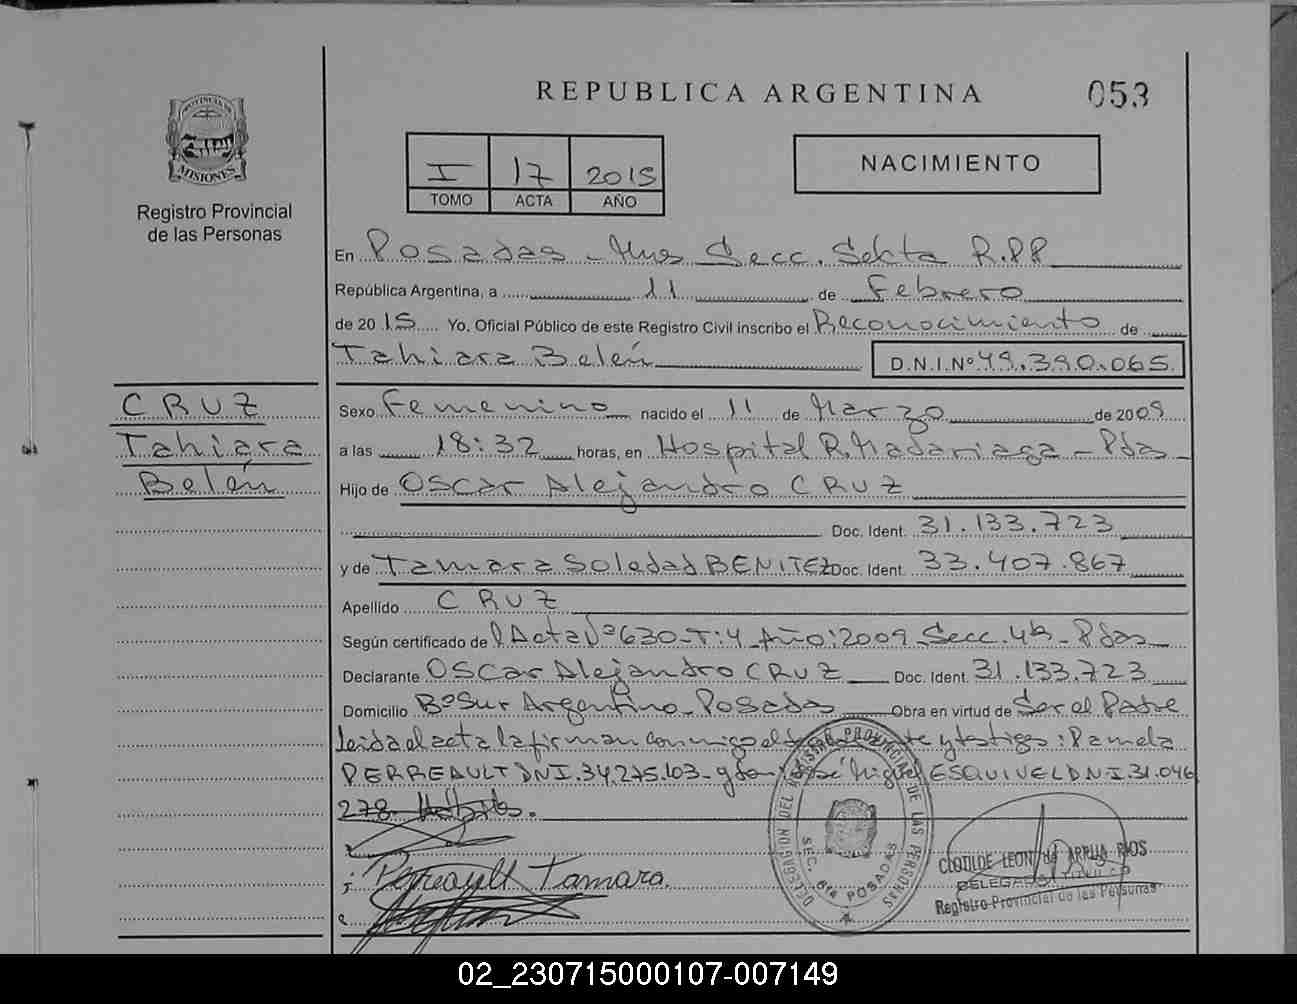 REPUBLICA ARGENTINA
053
PROVINCIA DE
MISIONES
Registro Provincial
de las Personas
I 17 2015
TOMO ACTA AÑO
NACIMIENTO
En Posadas - Mnes Secc. Sexta R.PP
República Argentina, a 11 de Febrero
de 2015 Yo, Oficial Público de este Registro Civil inscribo el Reconocimiento de
Tahiara Belén
D.N.I.Nº 49.390.065
CRUZ
Tahiara
Belén
Sexo Femenino nacido el 11 de Marzo de 2009
a las 18:32 horas, en Hospital R. Madariaga - Pdas
Hijo de Oscar Alejandro CRUZ
Doc. Ident. 31.133.723
y de Tamara Soledad BENITEZ Doc. Ident. 33.407.867
Apellido CRUZ
Según certificado de Acta Nº 630 - T:4 - Año:2009 - Secc. 4ta - Pdas
Declarante Oscar Alejandro CRUZ Doc. Ident. 31.133.723
Domicilio Bº Sur Argentino - Posadas Obra en virtud de Ser el Padre
leida el acta la firman conmigo el y testigos: Pamela
PERREAULT DNI. 34.275.103 - y José Miguel ESQUIVEL D.N.I. 31.046
278
Perreault Tamara.
DELEGACION DEL REGISTRO PROVINCIAL DE LAS PERSONAS
SEC. 6ta POSADAS
CLOTILDE LEON de ARRUA RIOS
DELEGADA TITULAR
Registro Provincial de las Personas
02_230715000107-007149